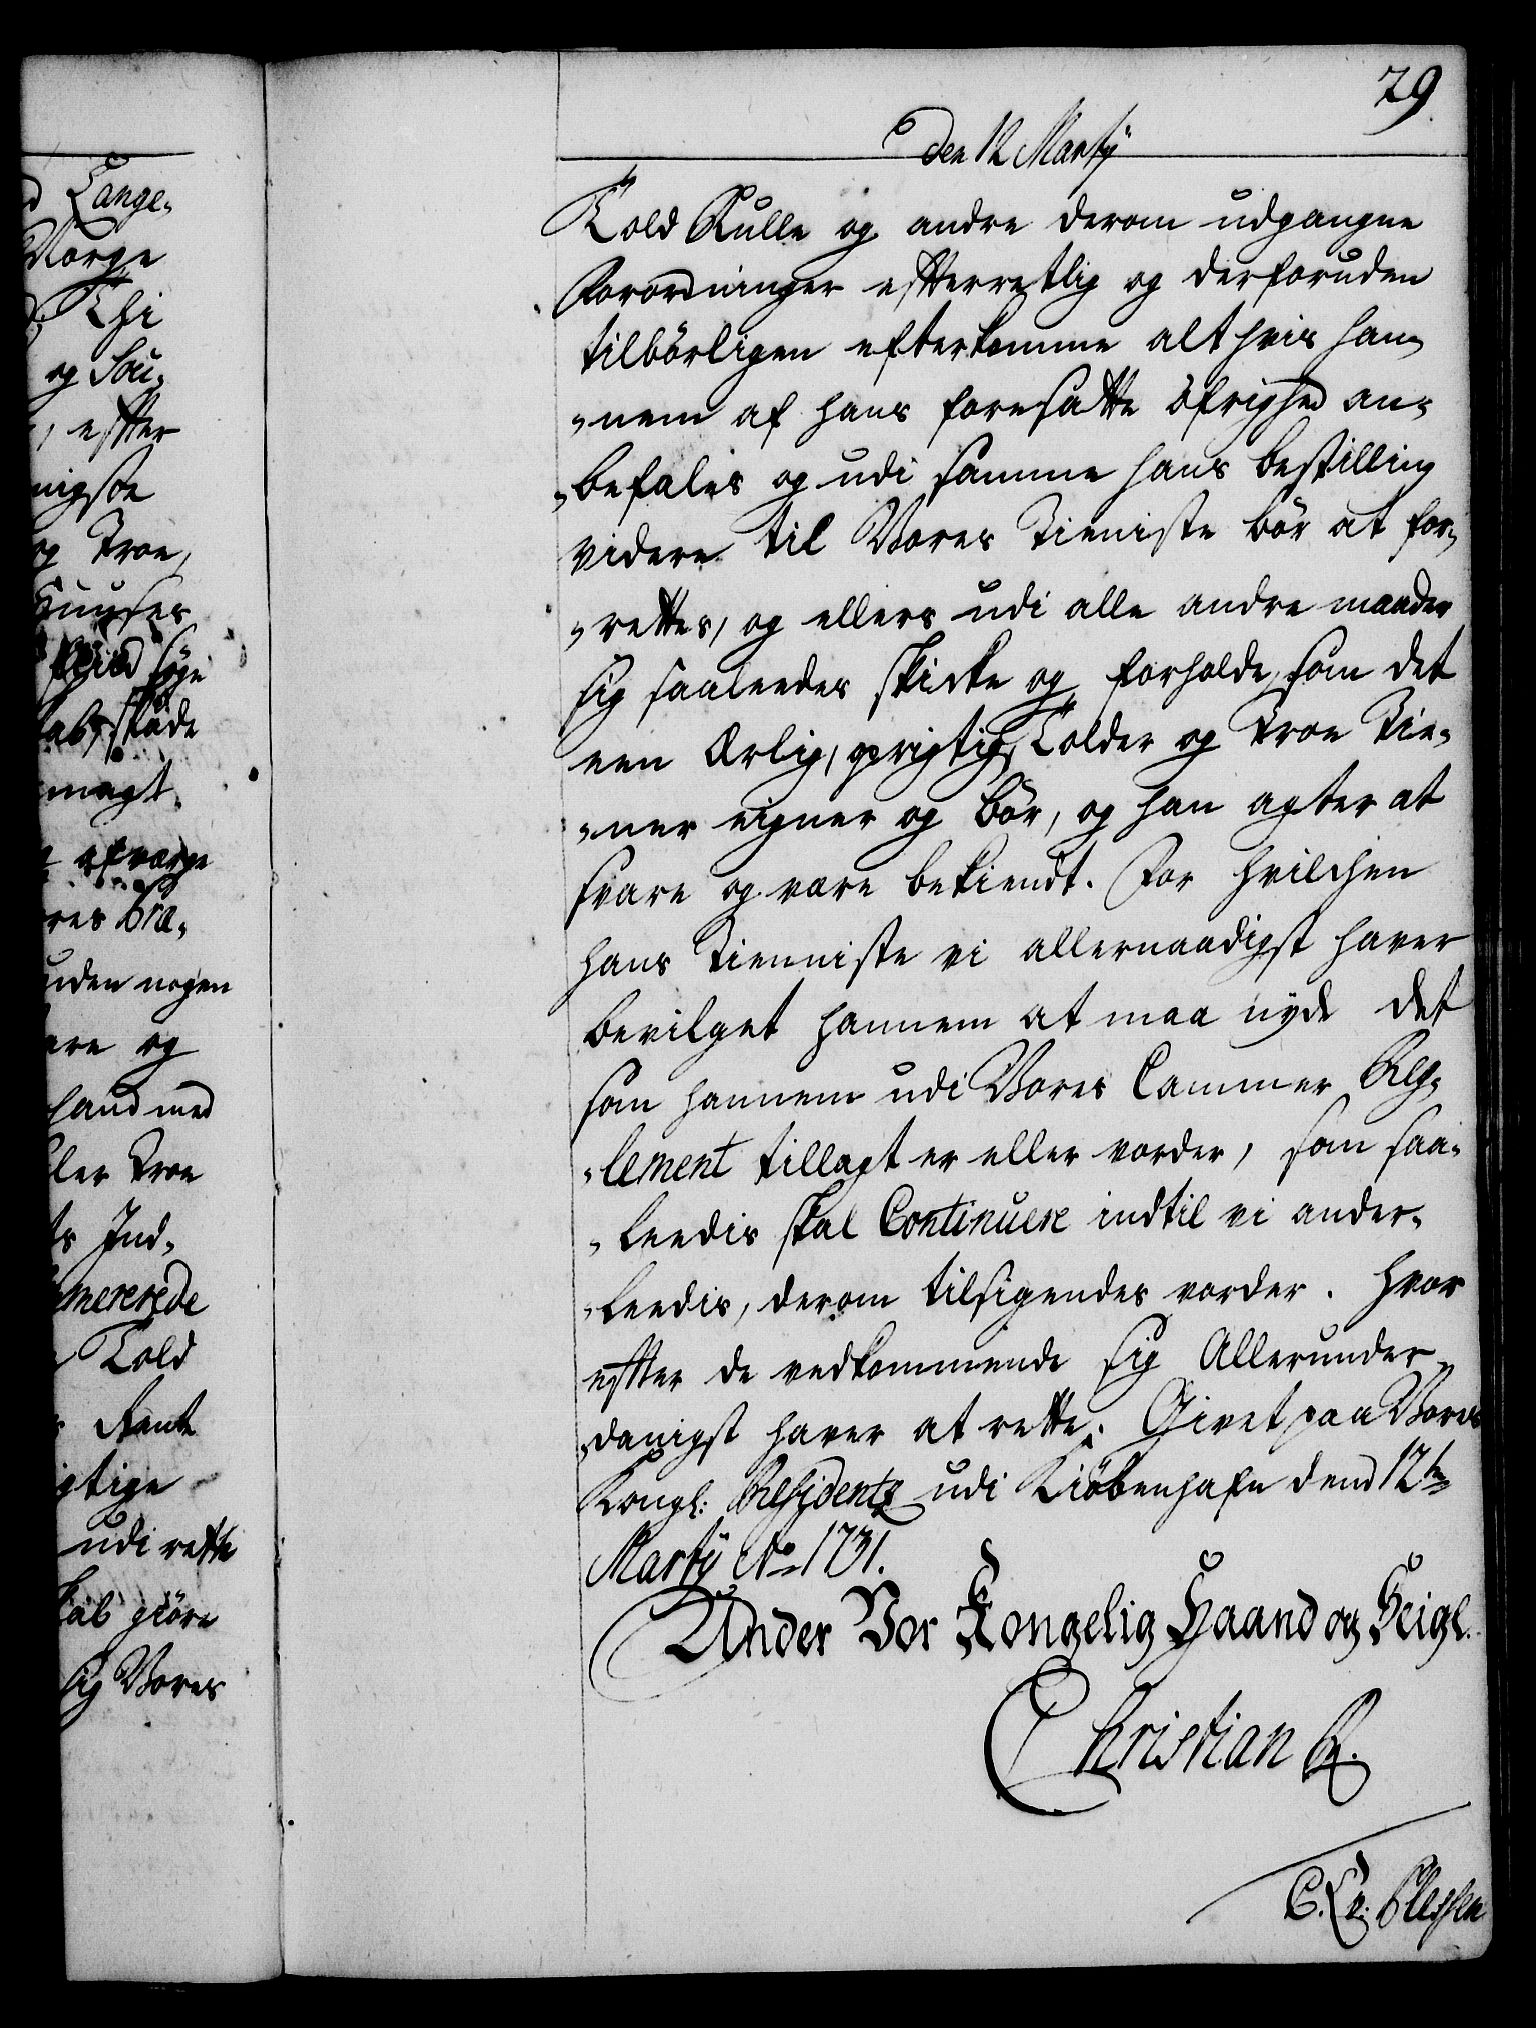 29
den 12 Martÿ
Told Rulle og andre derom udgangne
Forordninger efterretlig og derforuden
tilbörligen efterkomme alt hvis han-
-nem af hans foresatte öfrighed an-
-befales og udi samme hans bestilling
videre til Vores Tieniste bör at for-
-rettes, og ellers udi alle andre maader
sig saaleedes skicke og forholde, som det
een Ærlig, oprigtig Tolder og Troe Tie-
-ner eigner og bör, og han agter at
svare og være bekiendt. For hvilchen
hans Tienniste vi allernaadigst haver
bevilget hannem at maa nyde det
som hannem udi Vores Cammer Reg-
-lement tillagt er eller vorder, som saa-
-leedis skal Continuere indtil vi ander-
-leedis, derom tilsigendes vorder. Hvor
efter de vedkommende sig Allerunder-
-danigst haver at rette. Givet paa Vores
Kongl: Residentz udi Kiöbenhafn dend 12te
Martÿ Ao 1731.
Under Vor Kongelig Haand og Seigl.
Christian R.
C. A: Plessen
d Lange-
Norge
Thi
og Sou-
, efter
nigste
og Troe,
Huuses
söge
skade
magt
afværge
res bra-
uden nogen
ere og
haand med
ler troe
ts Ind-
mererede
Told
Rente
igtige
udi rette
kal giöre
sig Vores